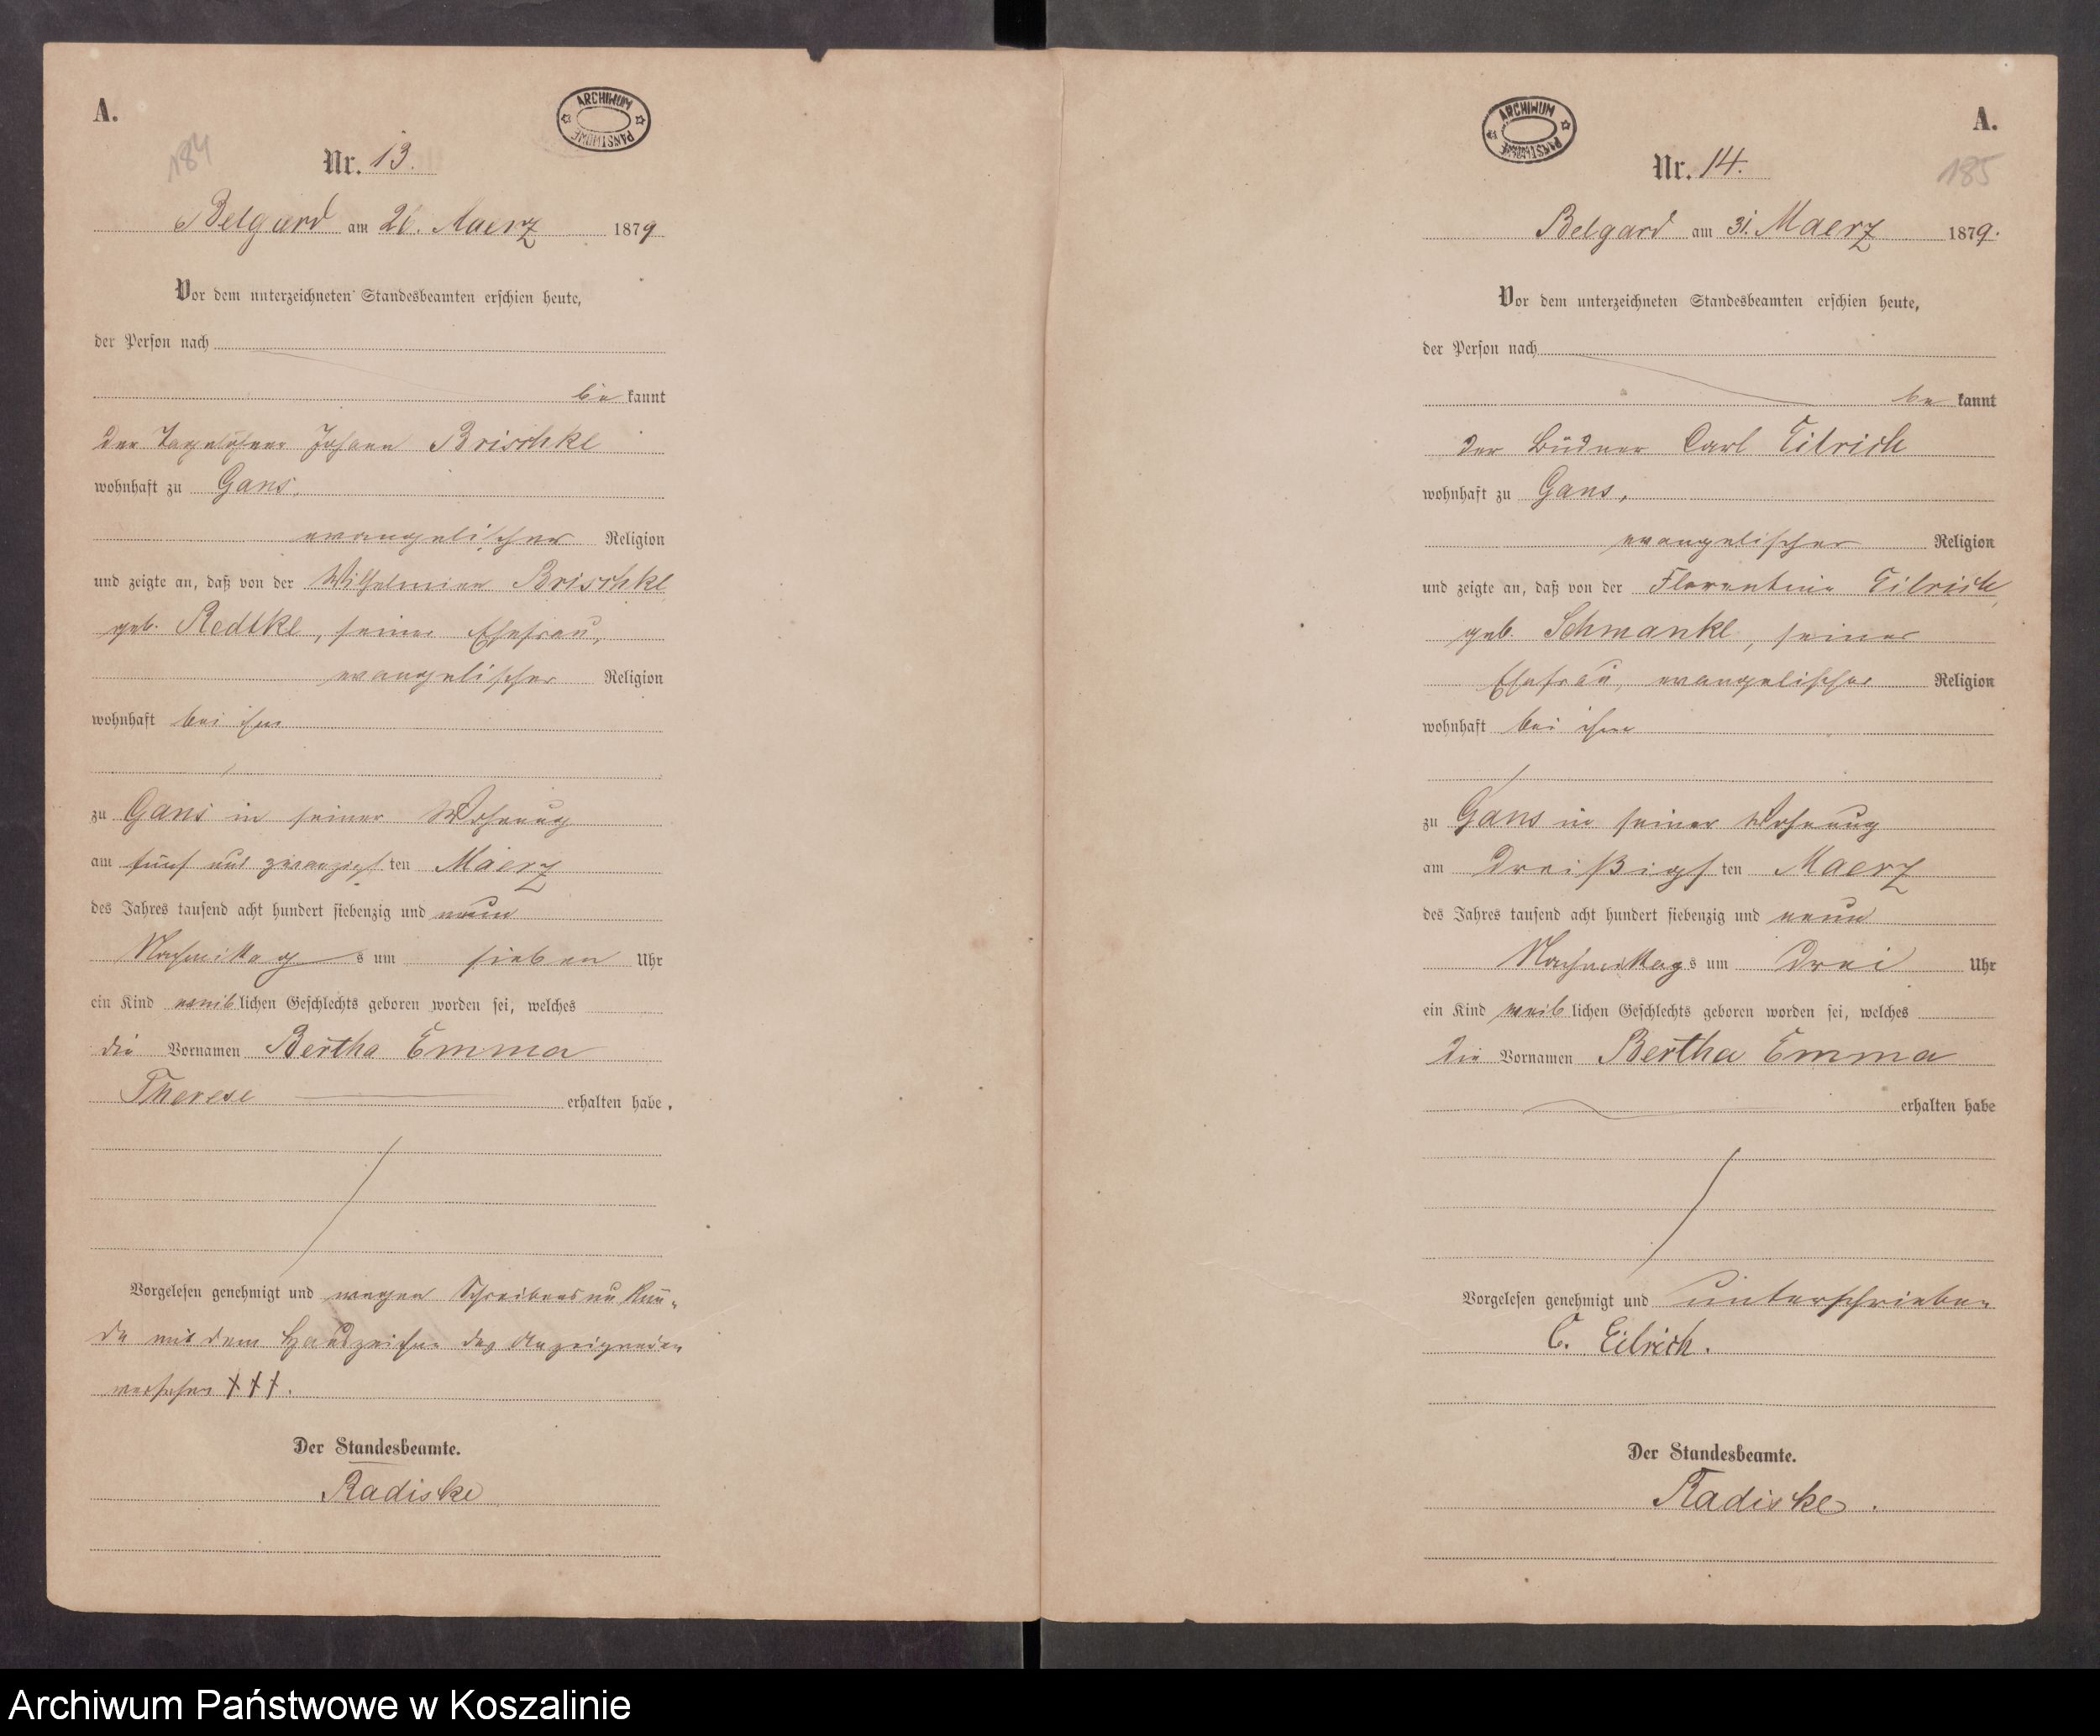 A.
184
ARCHIWUM PAŃSTWOWE
Nr. 13.
Belgard am 26. Maerz 1879
Vor dem unterzeichneten Standesbeamten erschien heute,
der Person nach
be kannt
der Tagelöhner Johann Brischke
wohnhaft zu Gans,
evangelischer Religion
und zeigte an, daß von der Wilhelmine Brischke
geb. Redtke, seiner Ehefrau,
evangelischer Religion
wohnhaft bei ihm
zu Gans in seiner Wohnung
am fünf und zwanzigs ten Maerz
des Jahres tausend acht hundert siebenzig und neun
Nachmittag s um sieben Uhr
ein Kind weib lichen Geschlechts geboren worden sei, welches
die Vornamen Bertha Emma
Therese erhalten habe.
Vorgelesen genehmigt und wegen Schreibensunkun-
de mit dem Handzeichen des Anzeigenden
versehen +++.
Der Standesbeamte.
Radiske
A.
185
ARCHIWUM PAŃSTWOWE
Nr. 14.
Belgard am 31. Maerz 1879.
Vor dem unterzeichneten Standesbeamten erschien heute,
der Person nach
be kannt
der Büdner Carl Eilrich
wohnhaft zu Gans,
evangelischer Religion
und zeigte an, daß von der Florentine Eilrich,
geb. Schmanke, seiner
Ehefrau, evangelischer Religion
wohnhaft bei ihm
zu Gans in seiner Wohnung
am dreißigs ten Maerz
des Jahres tausend acht hundert siebenzig und neun
Nachmittag s um drei Uhr
ein Kind weib lichen Geschlechts geboren worden sei, welches
die Vornamen Bertha Emma
erhalten habe
Vorgelesen genehmigt und unterschrieben
C. Eilrich.
Der Standesbeamte.
Radiske.
Archiwum Państwowe w Koszalinie